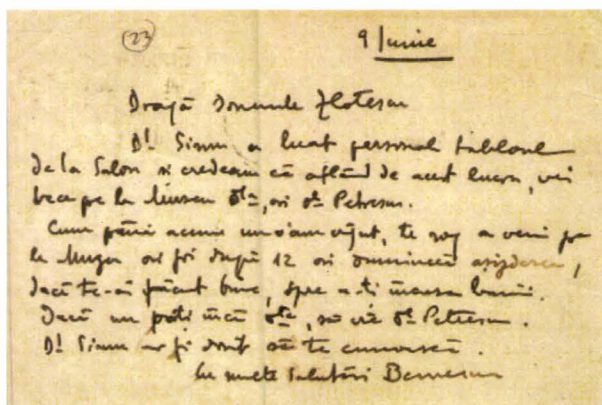 (23)
9 Iunie
Dragă Domnule Zlotescu
Dl. Simu a luat personal tabloul
de la Salon si credeam că aflând de acest lucru, vei
trece pe la Museu dta, ori dna Petrescu.
Cum până acum nu v'am văzut, te rog a veni pe
la Muzeu ori joi după 12 ori duminecă
dacă te-ai făcut bine, spre a-ti încasa banii.
Dacă nu poti încă dta, să vie dna Petrescu.
Dl Simu ar fi dorit să te cunoască.
Cu multe salutări